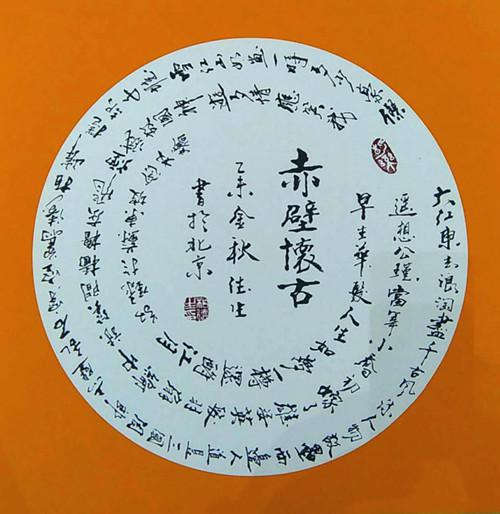 赤壁懷古
乙未金秋佳生
書於北京
大江東去浪淘盡千古風流人物故壘西邊人道是三國周郎赤壁亂石穿空驚濤拍岸捲起千堆雪江山如畫一時多少豪傑
遥想公瑾當年小喬初嫁了雄姿英發羽扇綸巾談笑間檣櫓灰飛煙滅故國神遊多情應笑我
早生華髮人生如夢一樽還酹江月